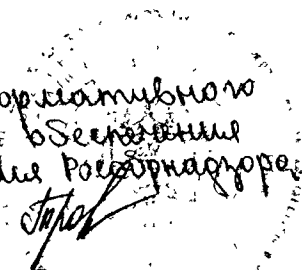 ормативного
обеспечения
ия Рособрнадзора